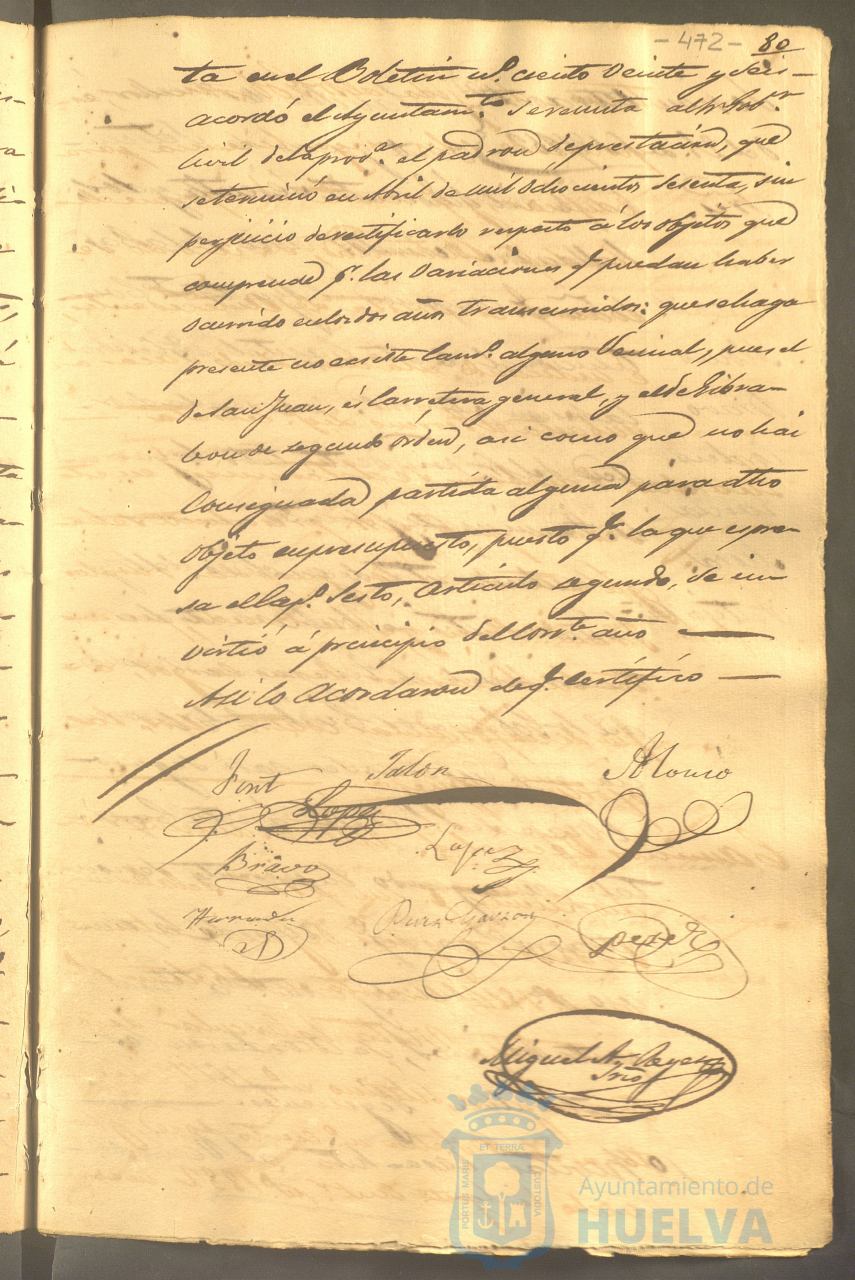 - 472 - 80
ta en el Boletin nº. ciento veinte y seis -
acordó el Ayuntamto. se remita al Sr. Gobr.
Civil de la prova. el padron de prestacion, que
se terminó en Abril de mil ochocientos sesenta, sin
perjuicio de rectificarlo respecto á los objetos que
comprende pr. las variaciones q. puedan haber
ocurrido en los dos años transcurridos: que se haga
presente no existe camo. alguno vecinal, pues el
de San Juan, es carretera general, y el de Gibra-
leon de segundo órden, asi como que no hai
consignada partida alguna para dho
objeto en presupuesto, puesto q. la que espre-
sa el Capo. sesto, Articulo segundo, se in-
virtió á principio del corrte. año
Asi lo acordaron de q. certifico
Font Jalon Alonso
Lopez
Bravo Lopez
Hernandez Garzon Perez
Miguel A. Reyes
Srio
ET TERRÆ
PORTUS MARIS CUSTODIA
Ayuntamiento de
HUELVA